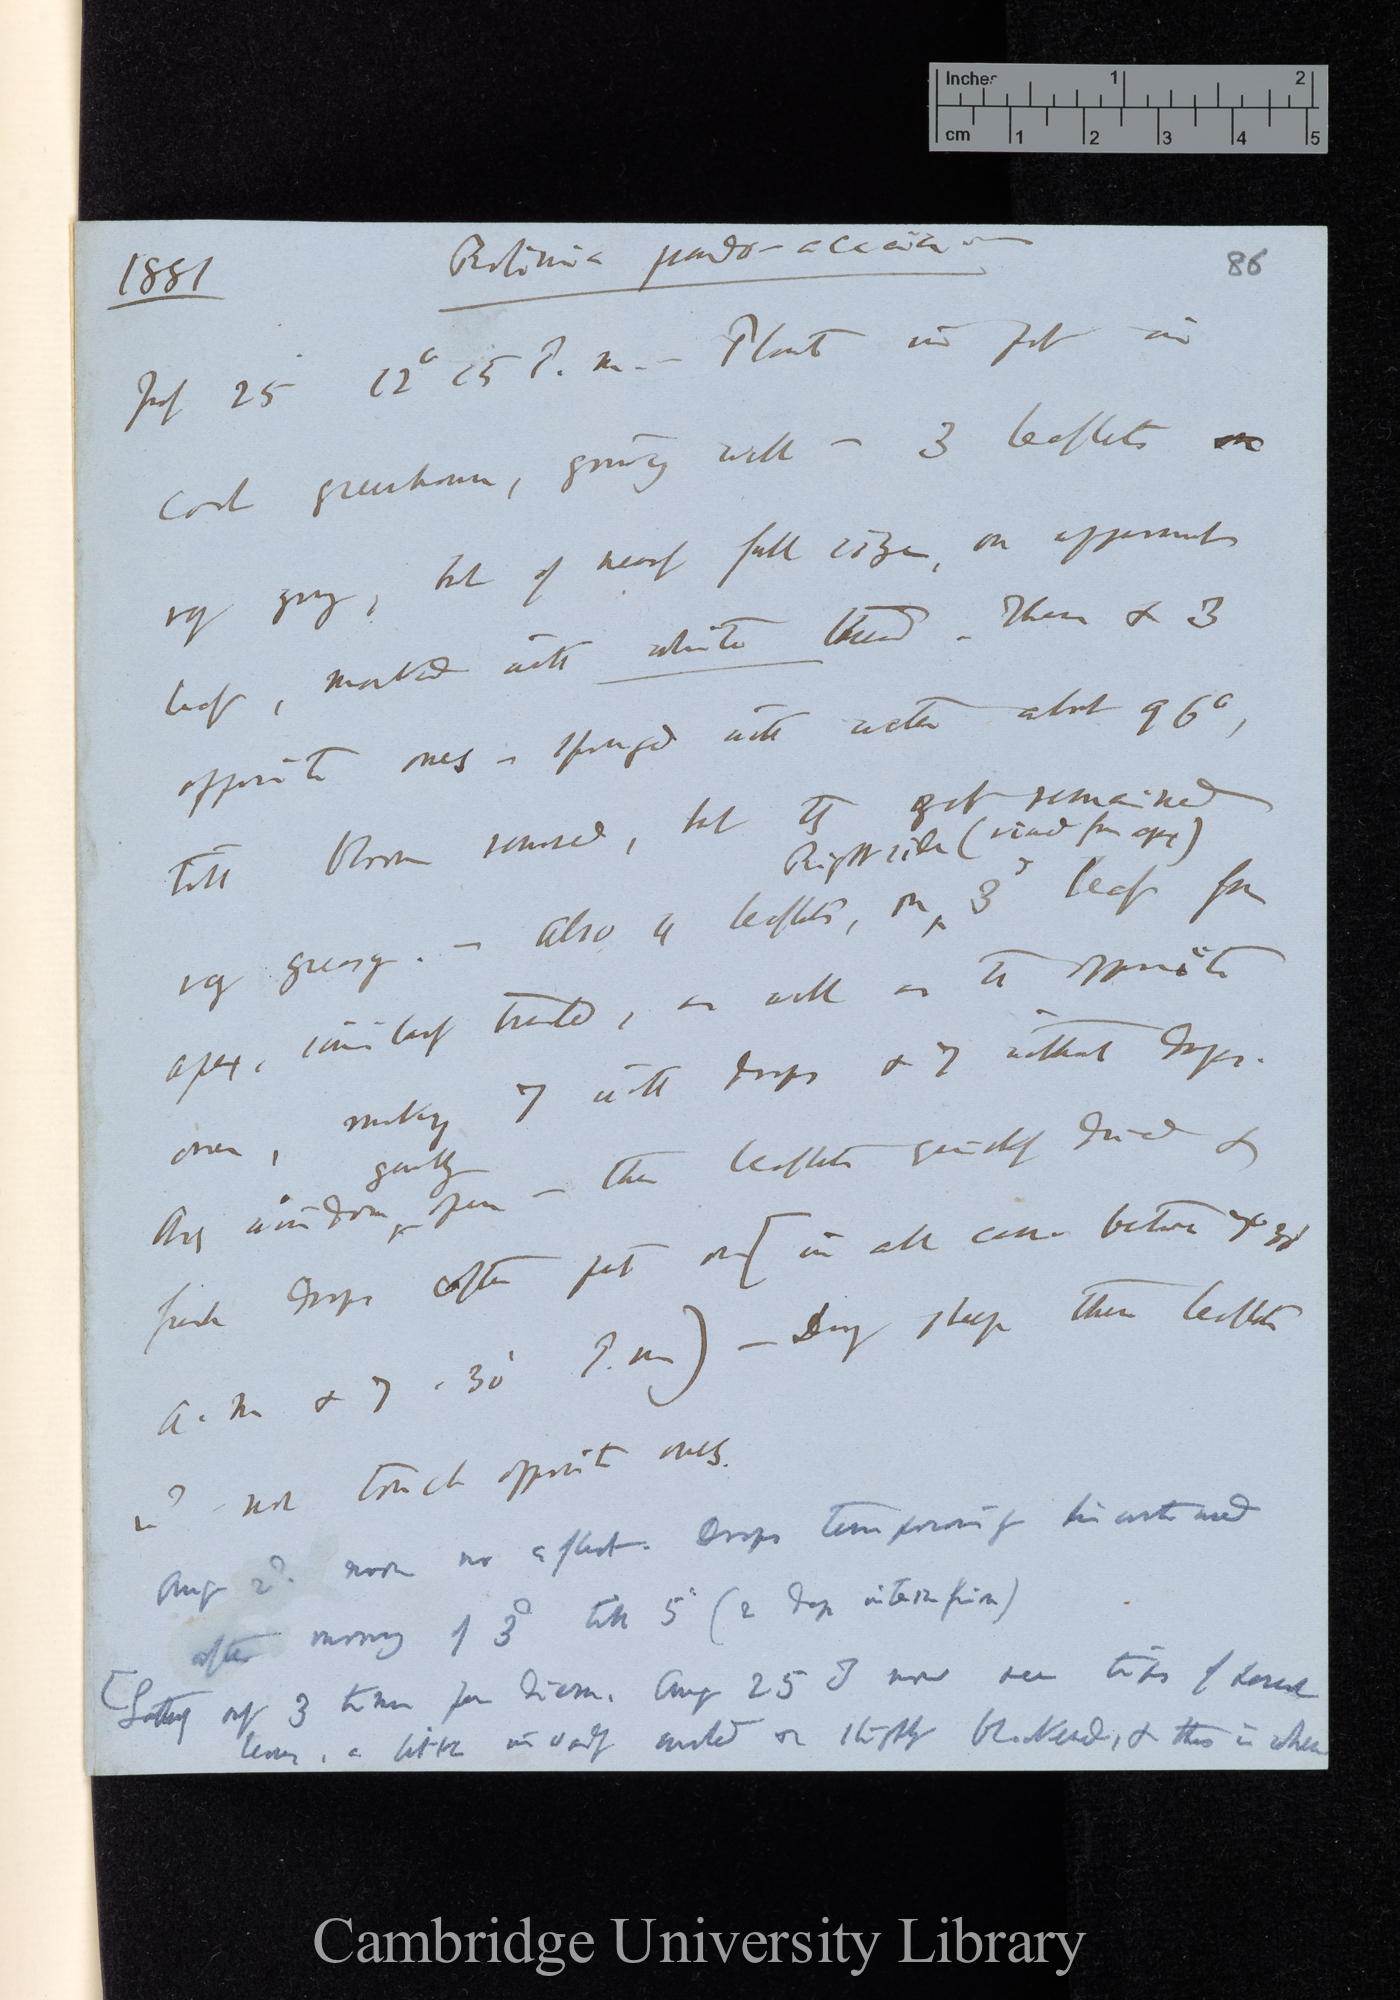 Inches 1 2
cm 1 2 3 4 5
86
1881 Robinia pseudo-acacia
July 25 12° 15 P.m. — Plant in pot in
cool greenhouse, growing well — 3 leaflets
vy young, but of nearly full size, on apparently
leaf, marked with white thread. These & 3
opposite ones — sponged with water about 96°,
till bloom removed, but they yet remained
Right side (viewed from apex)
vy greasy. — Also 4 leaflets, on 3d leaf from
apex, similarly treated, as well as the opposite
ones, making 7 with drops & 7 without drops.
gently
Any window open — these leaflets quickly dried &
fresh drops often put on [in all cases between 7° 30'
a.m & 7 . 30' P.m) — During sleep these leaflets
do not touch opposite ones.
Aug 2d. noon no effect. Drops temporarily discontinued
after morning of 3d till 5' (2 days intermission)
[Sattley only 3 times per diem. Aug 25 I now see tips of
leaves, a little inwardly curled or slightly blackened, & this is when
Cambridge University Library